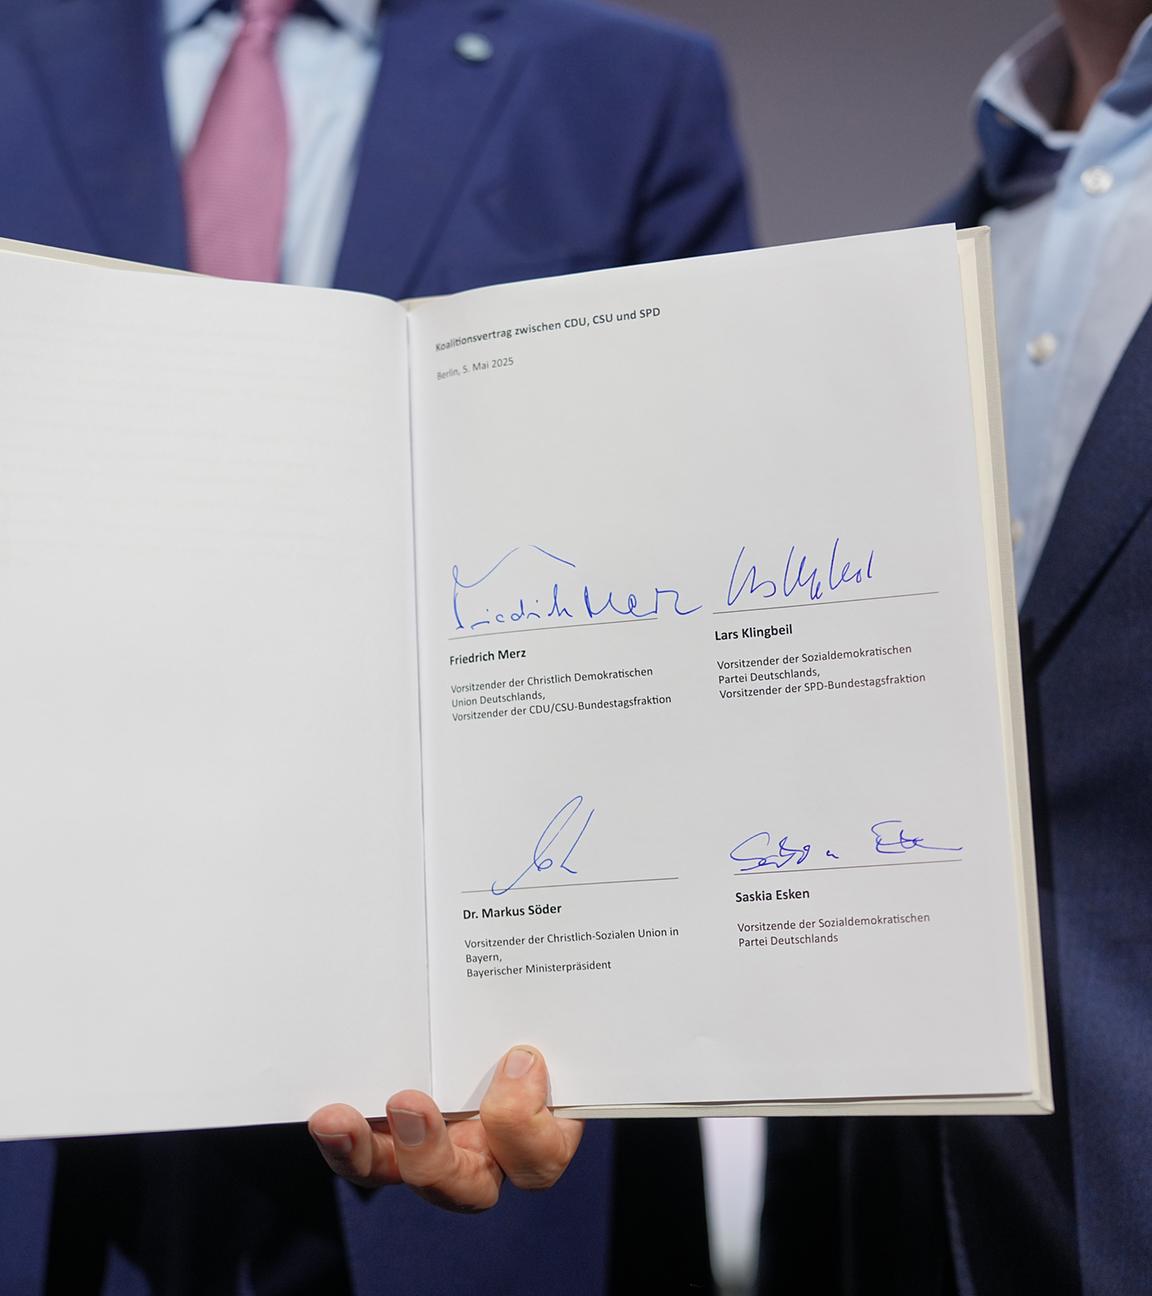 Koalitionsvertrag zwischen CDU, CSU und SPD
Berlin, 5. Mai 2025
Friedrich Merz
Lars Klingbeil
Friedrich Merz
Vorsitzender der Christlich Demokratischen
Union Deutschlands,
Vorsitzender der CDU/CSU-Bundestagsfraktion
Lars Klingbeil
Vorsitzender der Sozialdemokratischen
Partei Deutschlands,
Vorsitzender der SPD-Bundestagsfraktion
Saskia Esken
Dr. Markus Söder
Vorsitzender der Christlich-Sozialen Union in
Bayern,
Bayerischer Ministerpräsident
Saskia Esken
Vorsitzende der Sozialdemokratischen
Partei Deutschlands